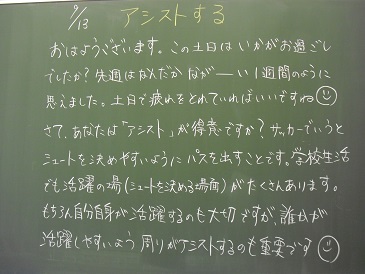 9/13 アシストする
おはようございます。この土日はいかがお過ごし
でしたか？先週はなんだかなが――い1週間のように
思えました。土日で疲れをとれていればいいですね
さて、あなたは「アシスト」が得意ですか？サッカーでいうと
シュートを決めやすいようにパスを出すことです。学校生活
でも活躍の場(シュートを決める場面)がたくさんあります。
もちろん自分自身が活躍するのも大切ですが、誰かが
活躍しやすいよう周りがアシストするのも重要です